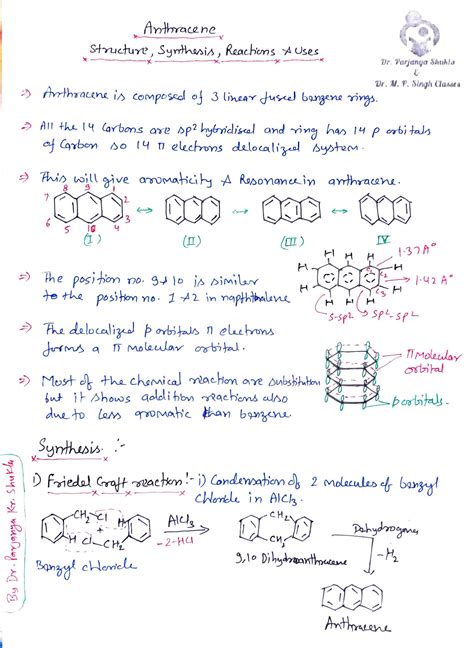 Anthracene
Structure, Synthesis, Reactions & Uses
Dr. Parjanya Shukla
&
Dr. M. P. Singh Classes
=) Anthracene is composed of 3 linear fused benzene rings.
=) All the 14 Carbons are sp² hybridised and ring has 14 p orbitals
of Carbon so 14 π electrons delocalized system.
=) This will give aromaticity & Resonance in anthracene.
8 9 1
7 2
6 3
5 10 4
(I) (II) (III) IV
=) The position no. 9 & 10 is similar
to the position no. 1 & 2 in napthhalene
H H H
1.37 A°
H H
C1
C2
C3
1.42 A°
H H
H H H
S-SP² SP²-SP²
=) The delocalized p orbitals π electrons
forms a π molecular orbital.
π Molecular
orbital
=) Most of the chemical reaction are substitution
but it shows addition reactions also
due to less aromatic than benzene.
p orbitals.
Synthesis :-
1) Friedel Craft reaction:- i) Condensation of 2 molecules of benzyl
Chloride in AlCl₃.
CH₂ Cl H
+
H Cl CH₂
AlCl₃
-2HCl
CH₂
CH₂
Dehydrogena
-H₂
Benzyl chloride
9,10 Dihydroanthracene
Anthracene
By Dr. Parjanya Kr. Shukla